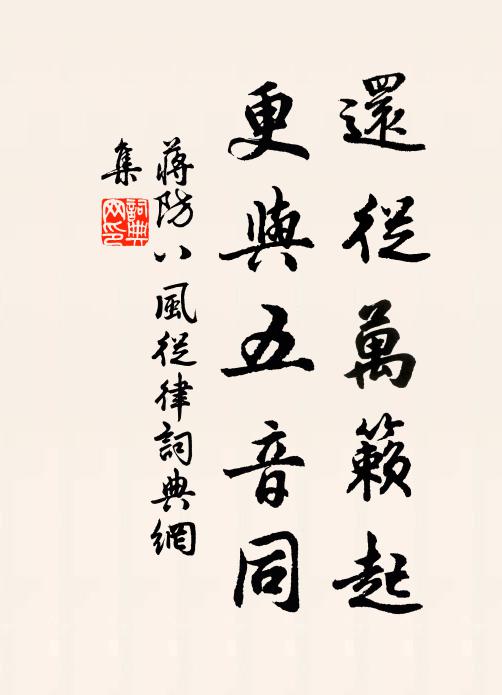 還從萬籟起
更與五音同
蔣防八風從律詞典網
集
詞典網印